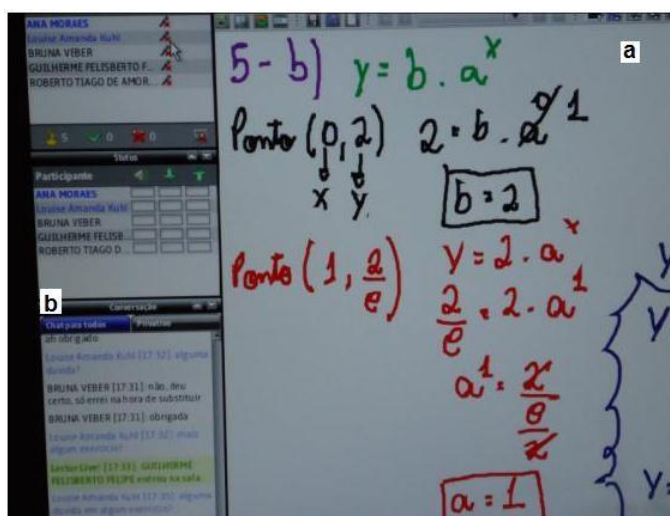 ANA MORAES
Louise Amanda Kuhl
BRUNA VEBER
GUILHERME FELISBERTO F...
ROBERTO TIAGO DE AMOR...
5 0 0
Status
Participante
ANA MORAES
Louise Amanda Kuhl
BRUNA VEBER
GUILHERME FELISB...
ROBERTO TIAGO D...
b
Conversação
Chat para todos Privativo
ah obrigado
Louise Amanda Kuhl [17:32]: alguma
dúvida?
BRUNA VEBER [17:31]: não, deu
certo, só errei na hora de substituir
BRUNA VEBER [17:31]: obrigada
Louise Amanda Kuhl [17:32]: mais
algum exercício?
LectorLive! [17:33]: GUILHERME
FELISBERTO FELIPE entrou na sala.
Louise Amanda Kuhl [17:35]: alguma
dúvida em algum exercício?
a
5 - b) y = b . a^x
Ponto (0, 2) 2 = b . a^0 1
x y
b = 2
Ponto (1, 2/e) y = 2 . a^x
2/e = 2 . a^1
a^1 = 2/e/2
a = 1
y
y
y=